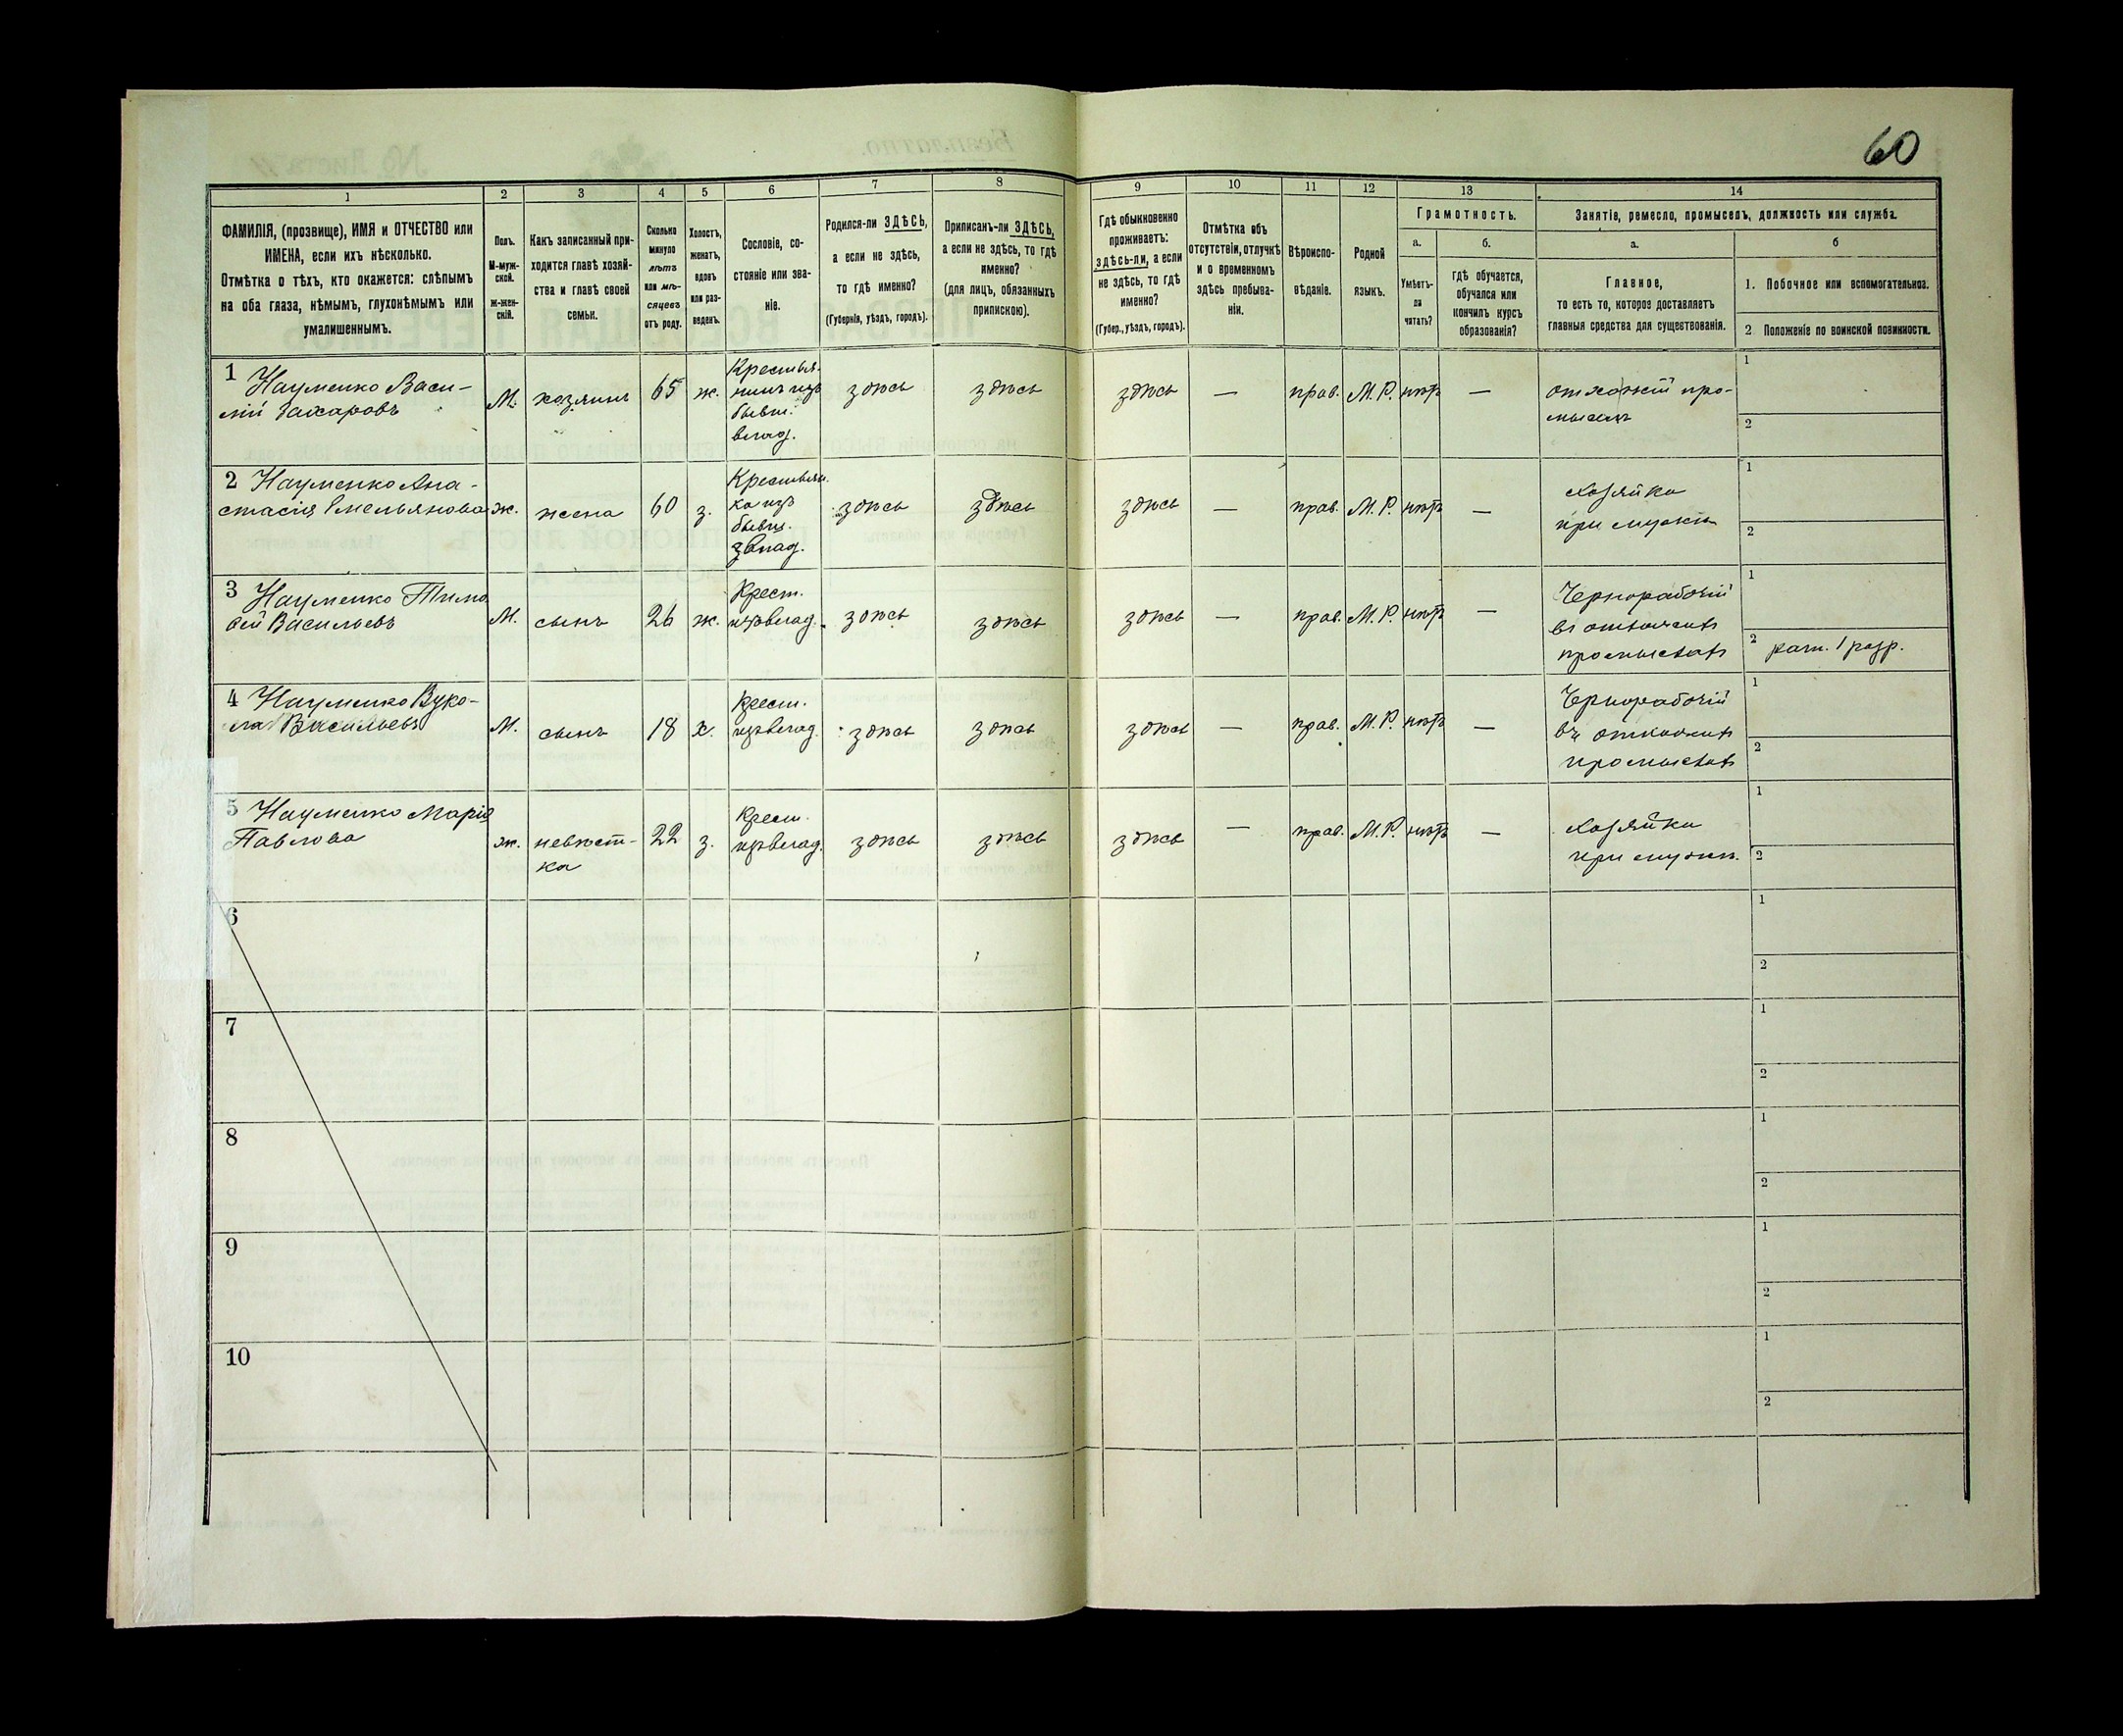 60
1
2
3
4
5
6
7
8
9
10
11
12
13
14
ФАМИЛІЯ, (прозвище), ИМЯ и ОТЧЕСТВО или
ИМЕНА, если ихъ нѣсколько.
Отмѣтка о тѣхъ, кто окажется: слѣпымъ
на оба глаза, нѣмымъ, глухонѣмымъ или
умалишеннымъ.
Полъ.
М-муж-
ской.
ж-жен-
скій.
Какъ записанный при-
ходится главѣ хозяй-
ства и главѣ своей
семьи.
Сколько
минуло
лѣтъ
или мѣ-
сяцевъ
отъ роду.
Холостъ,
женатъ,
вдовъ
или раз-
веденъ.
Сословіе, со-
стояніе или зва-
ніе.
Родился-ли ЗДѢСЬ,
а если не здѣсь,
то гдѣ именно?
(Губернія, уѣздъ, городъ).
Приписанъ-ли ЗДѢСЬ,
а если не здѣсь, то гдѣ
именно?
(для лицъ, обязанныхъ
припискою).
Гдѣ обыкновенно
проживаетъ:
здѣсь-ли, а если
не здѣсь, то гдѣ
именно?
(Губер., уѣздъ, городъ).
Отмѣтка объ
отсутствіи, отлучкѣ
и о временномъ
здѣсь пребыва-
ніи.
Вѣроиспо-
вѣданіе.
Родной
языкъ.
Грамотность.
а.
б.
Умѣетъ-
ли
читать?
гдѣ обучается,
обучался или
кончилъ курсъ
образованія?
Занятіе, ремесло, промыселъ, должность или служба.
а.
б
Главное,
то есть то, которое доставляетъ
главныя средства для существованія.
1. Побочное или вспомогательное.
2 Положеніе по воинской повинности.
1 Науменко Васи-
лій Захаровъ
М.
хозяинъ
65
ж.
Крестья-
нинъ изъ
бывш.
влад.
здѣсь
здѣсь
здѣсь
—
прав.
М. Р.
нѣтъ
—
отхожій про-
мыселъ
1
2
2 Науменко Ана-
стасія Емельянова
ж.
жена
60
з.
Крестьян.
ка изъ
бывш.
влад.
здѣсь
здѣсь
здѣсь
—
прав.
М. Р.
нѣтъ
Хозяйка
при мужѣ
1
2
3 Науменко Тимо
ѳей Васильевъ
М.
сынъ
26
ж.
Крест.
изъ влад.
здѣсь
здѣсь
здѣсь
—
прав.
М. Р.
нѣтъ
—
Чернорабочій
въ отхожемъ
промыслѣ
1
2 рат. 1 разр.
4 Науменко Вуко-
ла Васильевъ
М.
сынъ
18
х.
Крест.
изъ влад.
здѣсь
здѣсь
здѣсь
—
прав.
М. Р.
нѣтъ
—
Чернорабочій
въ отхожемъ
промыслѣ
1
2
5 Науменко Марія
Павлова
ж.
невѣст-
ка
22
з.
Крест.
изъ влад.
здѣсь
здѣсь
здѣсь
—
прав.
М. Р.
нѣтъ
—
Хозяйка
при мужѣ.
1
2
6
1
2
7
1
2
8
1
2
9
1
2
10
1
2